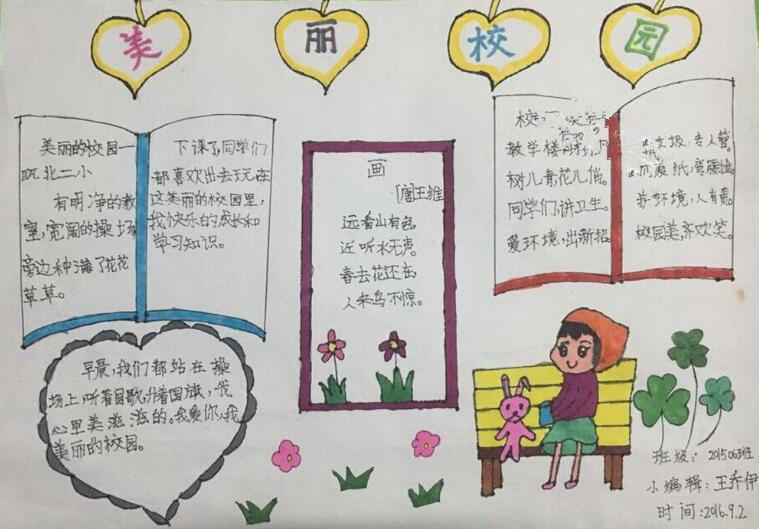 美丽校园
美丽的校园一
北二小
有明净的教
室,宽阔的操场
旁边种满了花花
草草。
下课了,同学们
都喜欢出去玩在
这美丽的校园里,
我快乐的成长和
学习知识。
画
[唐]王维
远看山有色,
近听水无声。
春去花还在,
人来鸟不惊。
校
教学楼
树儿青,花儿俏。
同学们,讲卫生。
爱环境,出新招
专人管。
环境,人有责。
校园美,齐欢笑。
早晨,我们都站在操
场上,听着国歌,升着国旗,我
心里美滋滋的。我爱你,我
美丽的校园。
班级:201506班
小编辑:王乔伊
时间:2016.9.2